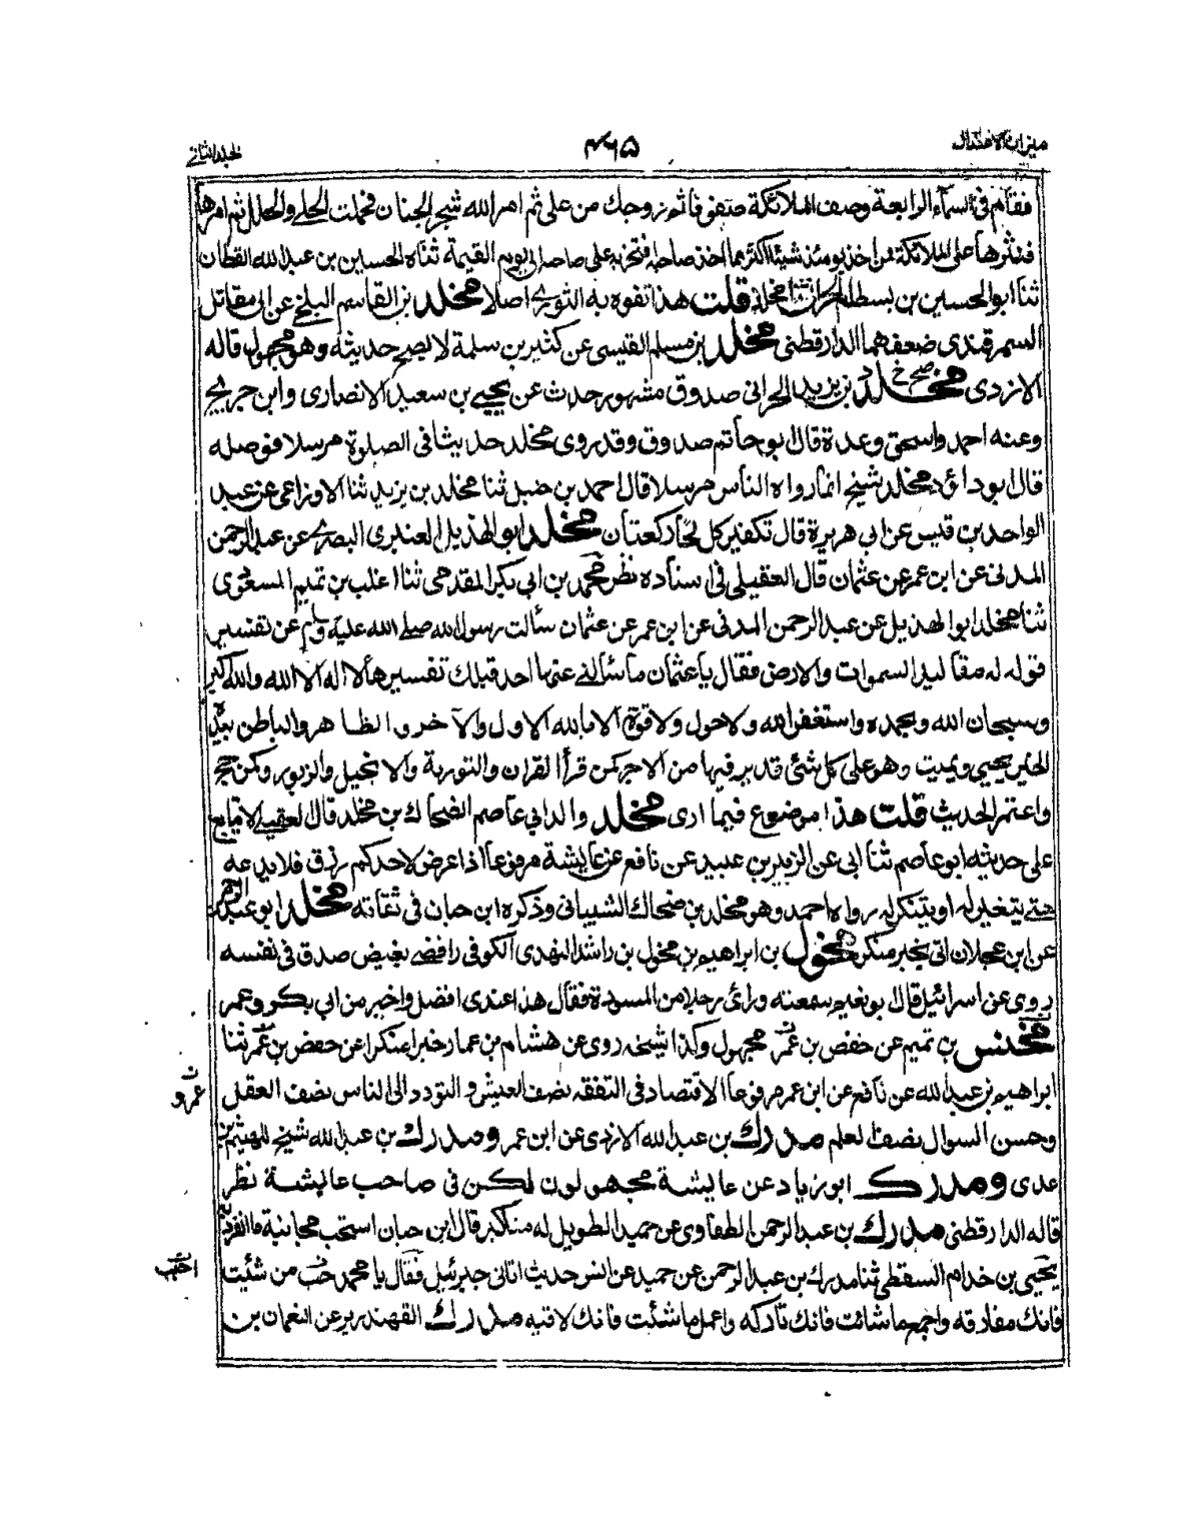 ميزان الاعتدال
٤٦٥
المجلد الثانى
فقام فى السماء الرابعة وصف الملائكة صفوفا ثم زوجك من على ثم امر الله شجر الجنان فحملت الحلى والحلل ثم امرها
فنثرها على الملائكة فمن اخذ يومئذ شيئا اكثر مما اخذ صاحبه افتخر به على صاحبه الى يوم القيمة ثناه الحسين بن عبد الله القطان
ثنا ابو الحسين بن بسطام ثنا مخلد قلت هذا تفوه به الثورى اصلا مخلد بن القاسم البلخى عن ابى مقاتل
السمرقندى ضعفهما الدارقطنى مخلد بن مسلم القيسى عن كثير بن سلمة لا يصح حديثه وهو مجهول قاله
الازدى مخلد صح خ د بن يزيد الحرانى صدوق مشهور حدث عن يحيى بن سعيد الانصارى وابن جريج
وعنه احمد واسحق وعدة قال ابو حاتم صدوق وقد روى مخلد حديثا فى الصلوة مرسلا فوصله
قال ابو داؤد مخلد شيخ انما رواه الناس مرسلا قال احمد بن حنبل ثنا مخلد بن يزيد ثنا الاوزاعى عن عبد
الواحد بن قيس عن ابى هريرة قال تكفير كل لحاء ركعتان مخلد ابو الهذيل العنبرى البصرى عن عبد الرحمن
المدنى عن ابن عمر عن عثمان قال العقيلى فى اسناده نظر محمد بن ابى بكر المقدمى ثنا اغلب بن تميم المسعودى
ثنا مخلد ابو الهذيل عن عبد الرحمن المدنى عن ابن عمر عن عثمان سألت رسول الله صلى الله عليه وسلم عن تفسير
قوله له مقاليد السموات والارض فقال يا عثمان ما سألنى عنها احد قبلك تفسيرها لا اله الا الله والله اكبر
وسبحان الله وبحمده واستغفر الله ولا حول ولا قوة الا بالله الاول والآخر والظاهر والباطن بيده
الخير يحيى ويميت وهو على كل شئ قدير فيها من الاجر كمن قرأ القران والتورية والانجيل والزبور وكمن حج
واعتمر الحديث قلت هذا موضوع فيما ارى مخلد والد ابى عاصم الضحاك بن مخلد قال العقيلى لا يتابع
على حديثه ابو عاصم ثنا ابى عن الزبير بن عبيد عن نافع عن عايشة مرفوعا اذا عرض لاحدكم رزق فلا يدعه
حتى يتغير له او يتنكر له رواه احمد وهو مخلد بن ضحاك الشيبانى وذكره ابن حبان فى ثقاته مخلد ابو عبد الرحمن
عن ابن عجلان اتى بخبر منكر مخول بن ابراهيم بن مخول بن راشد النهدى الكوفى رافضى بغيض صدق فى نفسه
روى عن اسرائيل قال ابو نعيم سمعته ورأى رجلا من المسودة فقال هذا عندى افضل واخير من ابى بكر وعمر
مخنس بن تميم عن حفص بن عمر مجهول وكذا شيخه روى عن هشام بن عمار خبرا منكرا عن حفص بن عمر ثنا
ابراهيم بن عبد الله عن نافع عن ابن عمر مرفوعا الاقتصاد فى النفقة نصف العيش والتودد الى الناس نصف العقل
عمرو
وحسن السوال نصف العلم مدرك بن عبد الله الازدى عن ابن عمر ومدرك بن عبد الله شيخ للهيثم بن
عدى ومدرك ابو زياد عن عايشة مجهولون لكن فى صاحب عايشة نظر
قاله الدارقطنى مدرك بن عبد الرحمن الطفاوى عن حميد الطويل له مناكير قال ابن حبان استحب مجانبة ما انفرد به
يحيى بن خدام السقطى ثنا مدرك بن عبد الرحمن عن حميد عن انس حديث اتانى جبرئيل فقال يا محمد حب من شئت
احبب
فانك مفارقه واجمع ما شئت فانك تاركه واعمل ما شئت فانك لاقيه مدرك القهندزى عن النعمان بن